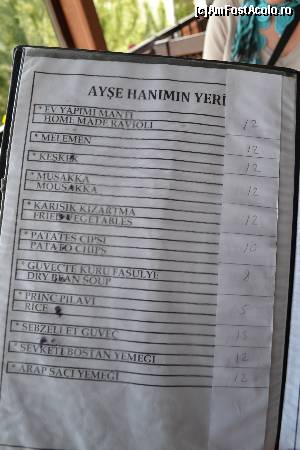 (c) AmFostAcolo.ro
AYŞE HANIMIN YERİ
* EV YAPIMI MANTI
HOME MADE RAVIOLI 12
* MELEMEN 12
* KEŞKEK 12
* MUSAKKA
MOUSAKKA 12
* KARISIK KIZARTMA
FRIED VEGETABLES 12
* PATATES CIPSI
PATATO CHIPS 10
* GUVECTE KURU FASULYE
DRY BEAN SOUP 8
* PRINÇ PILAVI
RICE 5
* SEBZELI ET GUVEÇ 15
* ŞEVKETI BOSTAN YEMEĞI 12
* ARAP SAÇI YEMEĞI 12